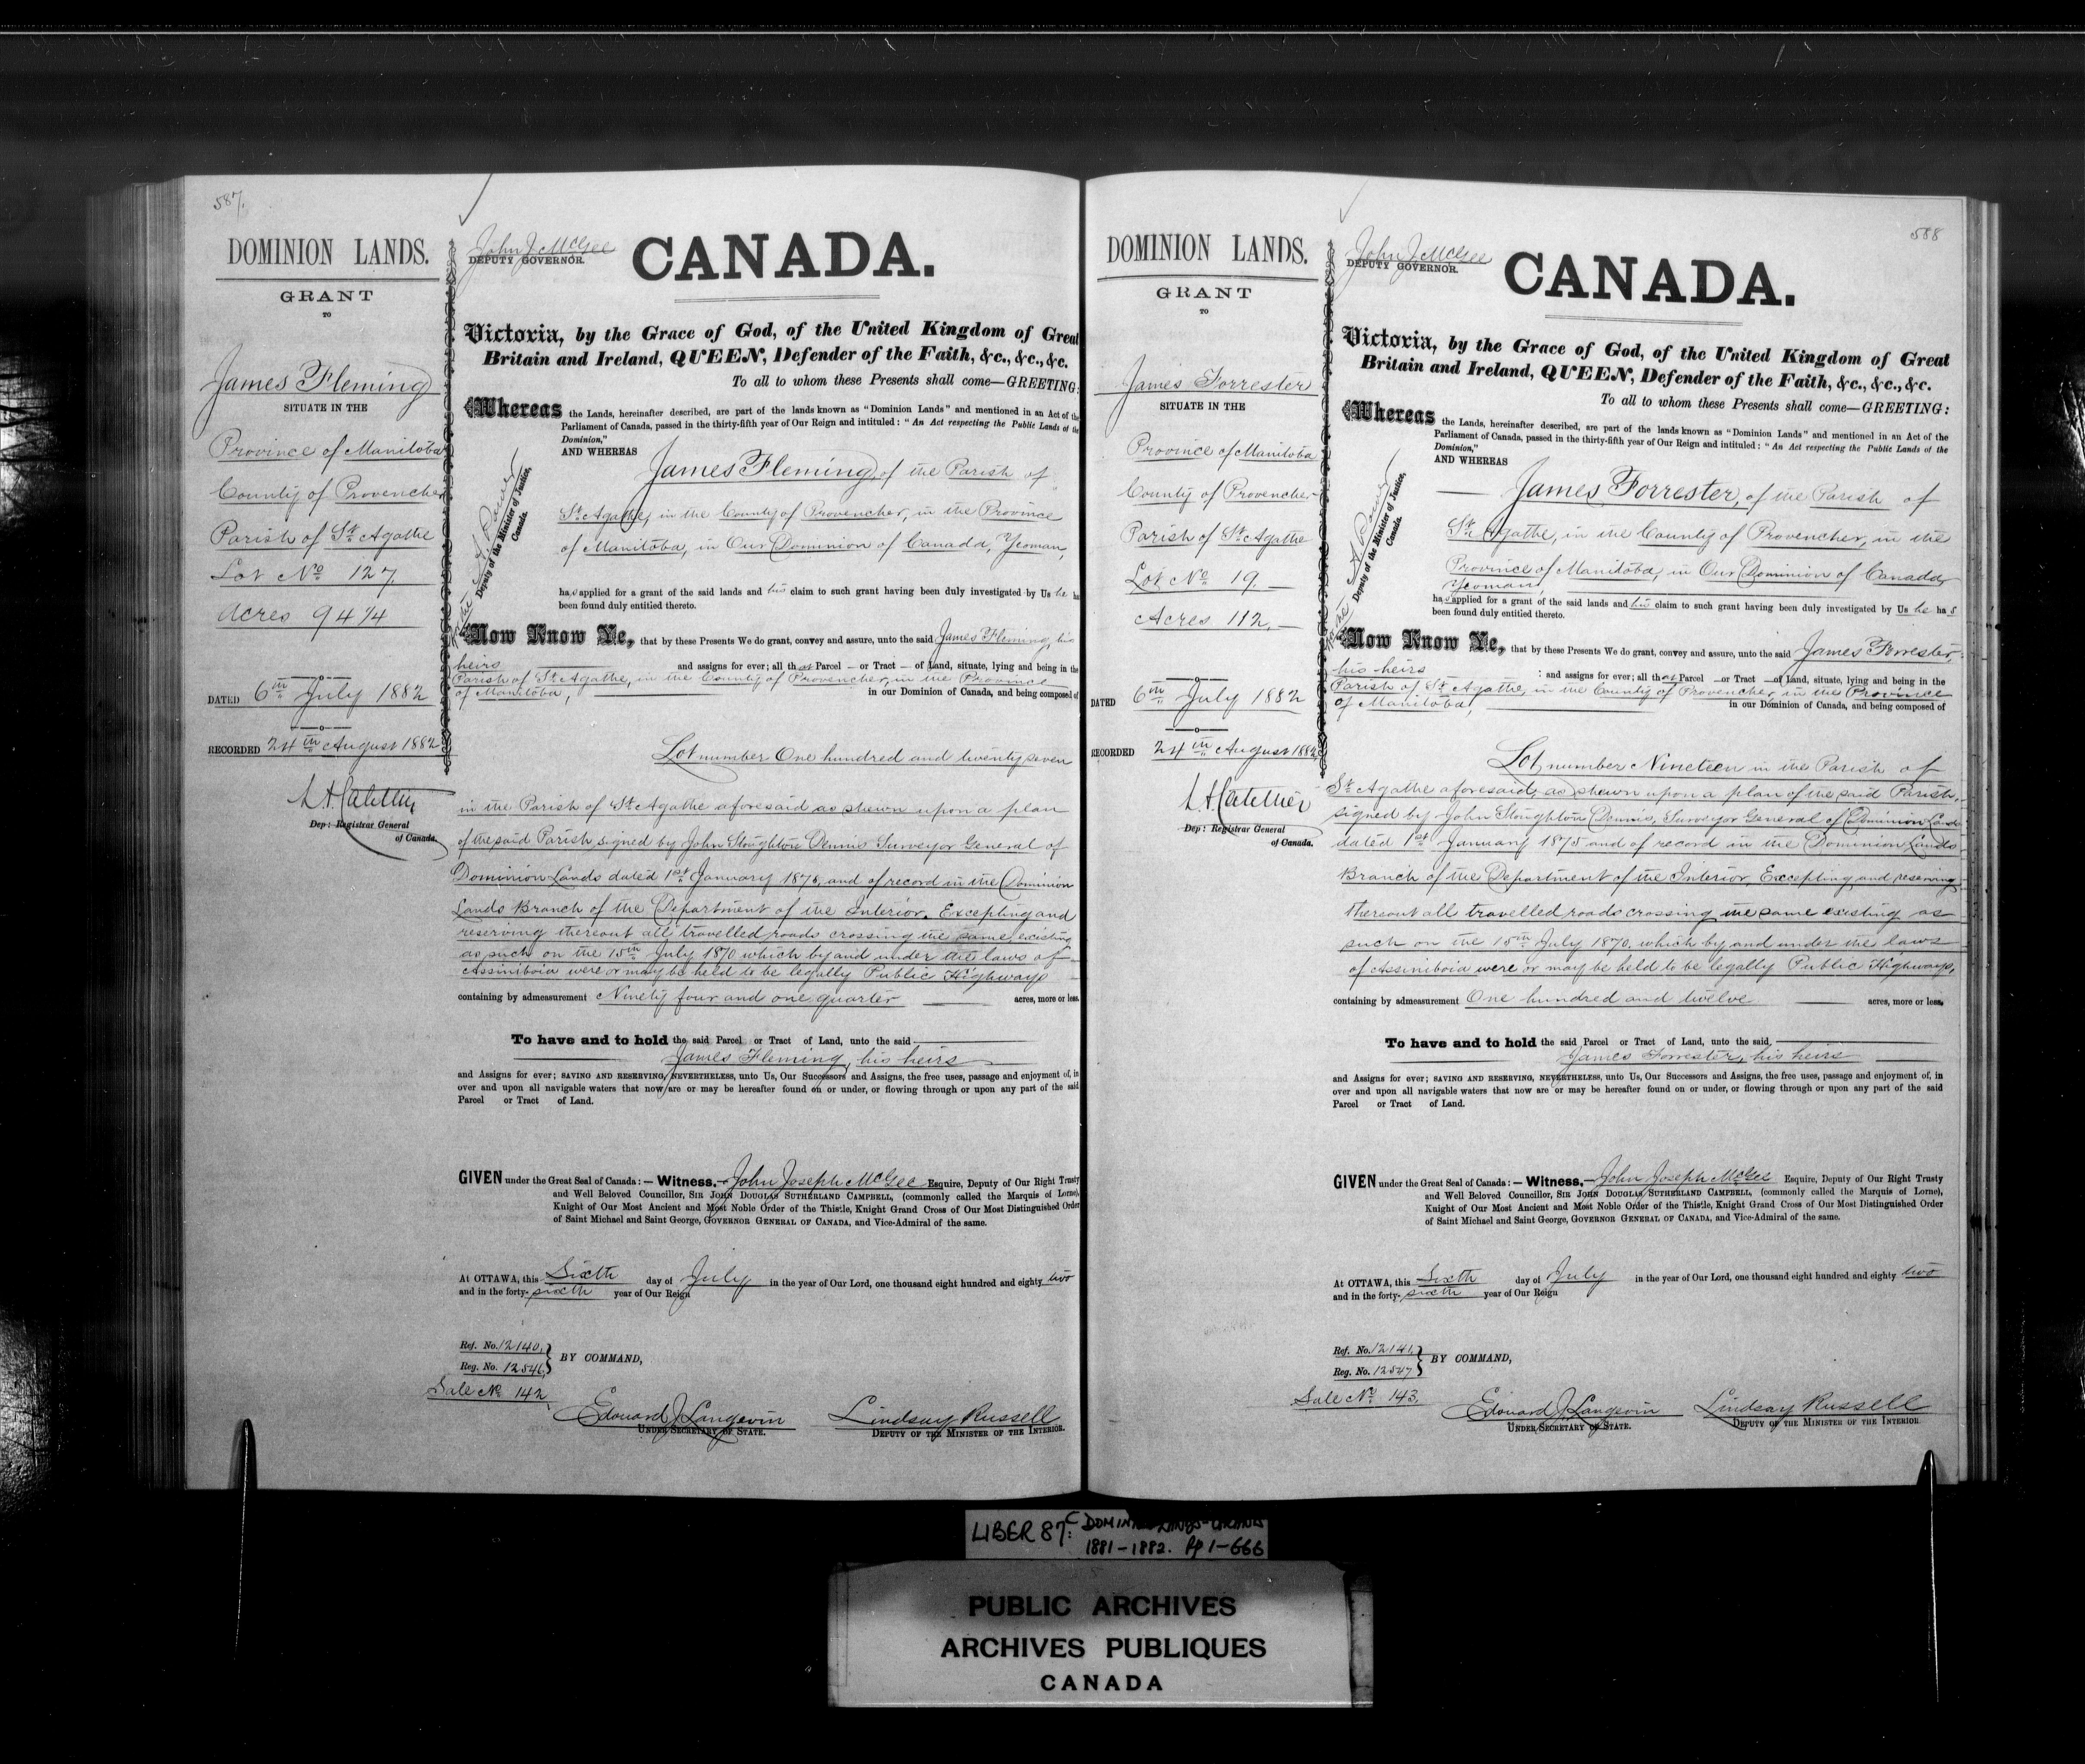 587.
DOMINION LANDS.
GRANT
TO
James Fleming
SITUATE IN THE
Province of Manitoba
County of Provencher
Parish of St. Agathe
Lot No 127.
Acres 94 1/4
DATED 6th July 1882
RECORDED 24th August 1882
Dep: Registrar General
of Canada.
John J. McGee
DEPUTY GOVERNOR.
CANADA.
Victoria, by the Grace of God, of the United Kingdom of Great
Britain and Ireland, QUEEN, Defender of the Faith, &c., &c., &c.
To all to whom these Presents shall come—GREETING:
Whereas the Lands, hereinafter described, are part of the lands known as "Dominion Lands" and mentioned in an Act of the
Parliament of Canada, passed in the thirty-fifth year of Our Reign and intituled: "An Act respecting the Public Lands of the
Dominion,"
AND WHEREAS
James Fleming, of the Parish of
St. Agathe, in the County of Provencher, in the Province
of Manitoba, in Our Dominion of Canada, Yeoman,
Deputy of the Minister of Justice,
Canada.
has applied for a grant of the said lands and his claim to such grant having been duly investigated by Us he ha
been found duly entitled thereto.
Now Know Ye, that by these Presents We do grant, convey and assure, unto the said James Fleming, his
heirs and assigns for ever; all that Parcel — or Tract — of Land, situate, lying and being in the
Parish of St. Agathe, in the County of Provencher, in the Province
of Manitoba, in our Dominion of Canada, and being composed of
Lot number One hundred and twenty seven
in the Parish of St. Agathe aforesaid as shewn upon a plan
of the said Parish signed by John Stoughton Dennis Surveyor General of
Dominion Lands dated 1st January 1875, and of record in the Dominion
Lands Branch of the Department of the Interior. Excepting and
reserving thereout all travelled roads crossing the same, existing
as such on the 15th July 1870 which by and under the laws of
Assiniboia were or may be held to be legally Public Highways
containing by admeasurement Ninety four and one quarter acres, more or less.
To have and to hold the said Parcel or Tract of Land, unto the said
James Fleming, his heirs
and Assigns for ever; SAVING AND RESERVING, NEVERTHELESS, unto Us, Our Successors and Assigns, the free uses, passage and enjoyment of, in
over and upon all navigable waters that now are or may be hereafter found on or under, or flowing through or upon any part of the said
Parcel or Tract of Land.
GIVEN under the Great Seal of Canada: — Witness, — John Joseph McGee Esquire, Deputy of Our Right Trusty
and Well Beloved Councillor, SIR JOHN DOUGLAS SUTHERLAND CAMPBELL, (commonly called the Marquis of Lorne),
Knight of Our Most Ancient and Most Noble Order of the Thistle, Knight Grand Cross of Our Most Distinguished Order
of Saint Michael and Saint George, GOVERNOR GENERAL OF CANADA, and Vice-Admiral of the same.
At OTTAWA, this Sixth day of July in the year of Our Lord, one thousand eight hundred and eighty two
and in the forty-sixth year of Our Reign
Ref. No. 12140,
Reg. No. 12546,
BY COMMAND,
Sale No. 142,
Edouard J. Langevin
UNDER SECRETARY OF STATE.
Lindsay Russell
DEPUTY OF THE MINISTER OF THE INTERIOR.
588
DOMINION LANDS.
GRANT
TO
James Forrester
SITUATE IN THE
Province of Manitoba
County of Provencher
Parish of St. Agathe
Lot No 19.
Acres 112,
DATED 6th July 1882
RECORDED 24th August 1882
Dep: Registrar General
of Canada.
John J. McGee
DEPUTY GOVERNOR.
CANADA.
Victoria, by the Grace of God, of the United Kingdom of Great
Britain and Ireland, QUEEN, Defender of the Faith, &c., &c., &c.
To all to whom these Presents shall come—GREETING:
Whereas the Lands, hereinafter described, are part of the lands known as "Dominion Lands" and mentioned in an Act of the
Parliament of Canada, passed in the thirty-fifth year of Our Reign and intituled: "An Act respecting the Public Lands of the
Dominion,"
AND WHEREAS
James Forrester, of the Parish of
St. Agathe, in the County of Provencher, in the
Province of Manitoba, in Our Dominion of Canada,
Yeoman,
Deputy of the Minister of Justice,
Canada.
has applied for a grant of the said lands and his claim to such grant having been duly investigated by Us he has
been found duly entitled thereto.
Now Know Ye, that by these Presents We do grant, convey and assure, unto the said James Forrester,
his heirs : and assigns for ever; all that Parcel — or Tract — of Land, situate, lying and being in the
Parish of St. Agathe, in the County of Provencher, in the Province
of Manitoba, in our Dominion of Canada, and being composed of
Lot number Nineteen in the Parish of
St. Agathe aforesaid, as shewn upon a plan of the said Parish,
signed by John Stoughton Dennis, Surveyor General of Dominion Lands
dated 1st January 1875 and of record in the Dominion Lands
Branch of the Department of the Interior, Excepting and reserving
thereout all travelled roads crossing the same existing as
such on the 15th July 1870, which by and under the laws
of Assiniboia were or may be held to be legally Public Highways,
containing by admeasurement One hundred and twelve acres, more or less.
To have and to hold the said Parcel or Tract of Land, unto the said,
James Forrester, his heirs
and Assigns for ever; SAVING AND RESERVING, NEVERTHELESS, unto Us, Our Successors and Assigns, the free uses, passage and enjoyment of, in
over and upon all navigable waters that now are or may be hereafter found on or under, or flowing through or upon any part of the said
Parcel or Tract of Land.
GIVEN under the Great Seal of Canada: — Witness, — John Joseph McGee Esquire, Deputy of Our Right Trusty
and Well Beloved Councillor, SIR JOHN DOUGLAS SUTHERLAND CAMPBELL, (commonly called the Marquis of Lorne),
Knight of Our Most Ancient and Most Noble Order of the Thistle, Knight Grand Cross of Our Most Distinguished Order
of Saint Michael and Saint George, GOVERNOR GENERAL OF CANADA, and Vice-Admiral of the same.
At OTTAWA, this Sixth day of July in the year of Our Lord, one thousand eight hundred and eighty two
and in the forty-sixth year of Our Reign
Ref. No. 12141,
Reg. No. 12547
BY COMMAND,
Sale No. 143,
Edouard J. Langevin
UNDER SECRETARY OF STATE.
Lindsay Russell
DEPUTY OF THE MINISTER OF THE INTERIOR
LIBER 87C: DOMINION LANDS-GRANTS
1881-1882. Pp 1-666
PUBLIC ARCHIVES
ARCHIVES PUBLIQUES
CANADA